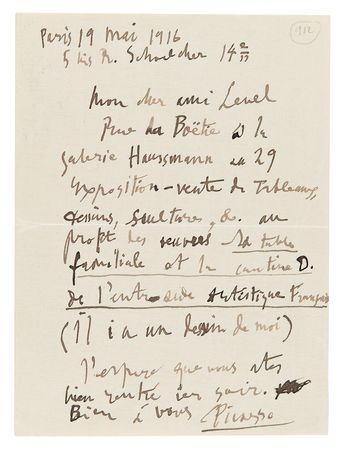 912
Paris 19 mai 1916
5 bis R. Schoelcher 14e
Mon cher ami Level
Rue La Boëtie à la
Galerie Haussmann au 29
exposition-vente de tableaux,
dessins, scultures, &. au
profit des œuvres La table
familiale et la cantine D.
de l'entr-aide artistique Française
(Il i a un dessin de moi)
J'espere que vous etes
bien rentré ier soir.
Bien à vous Picasso